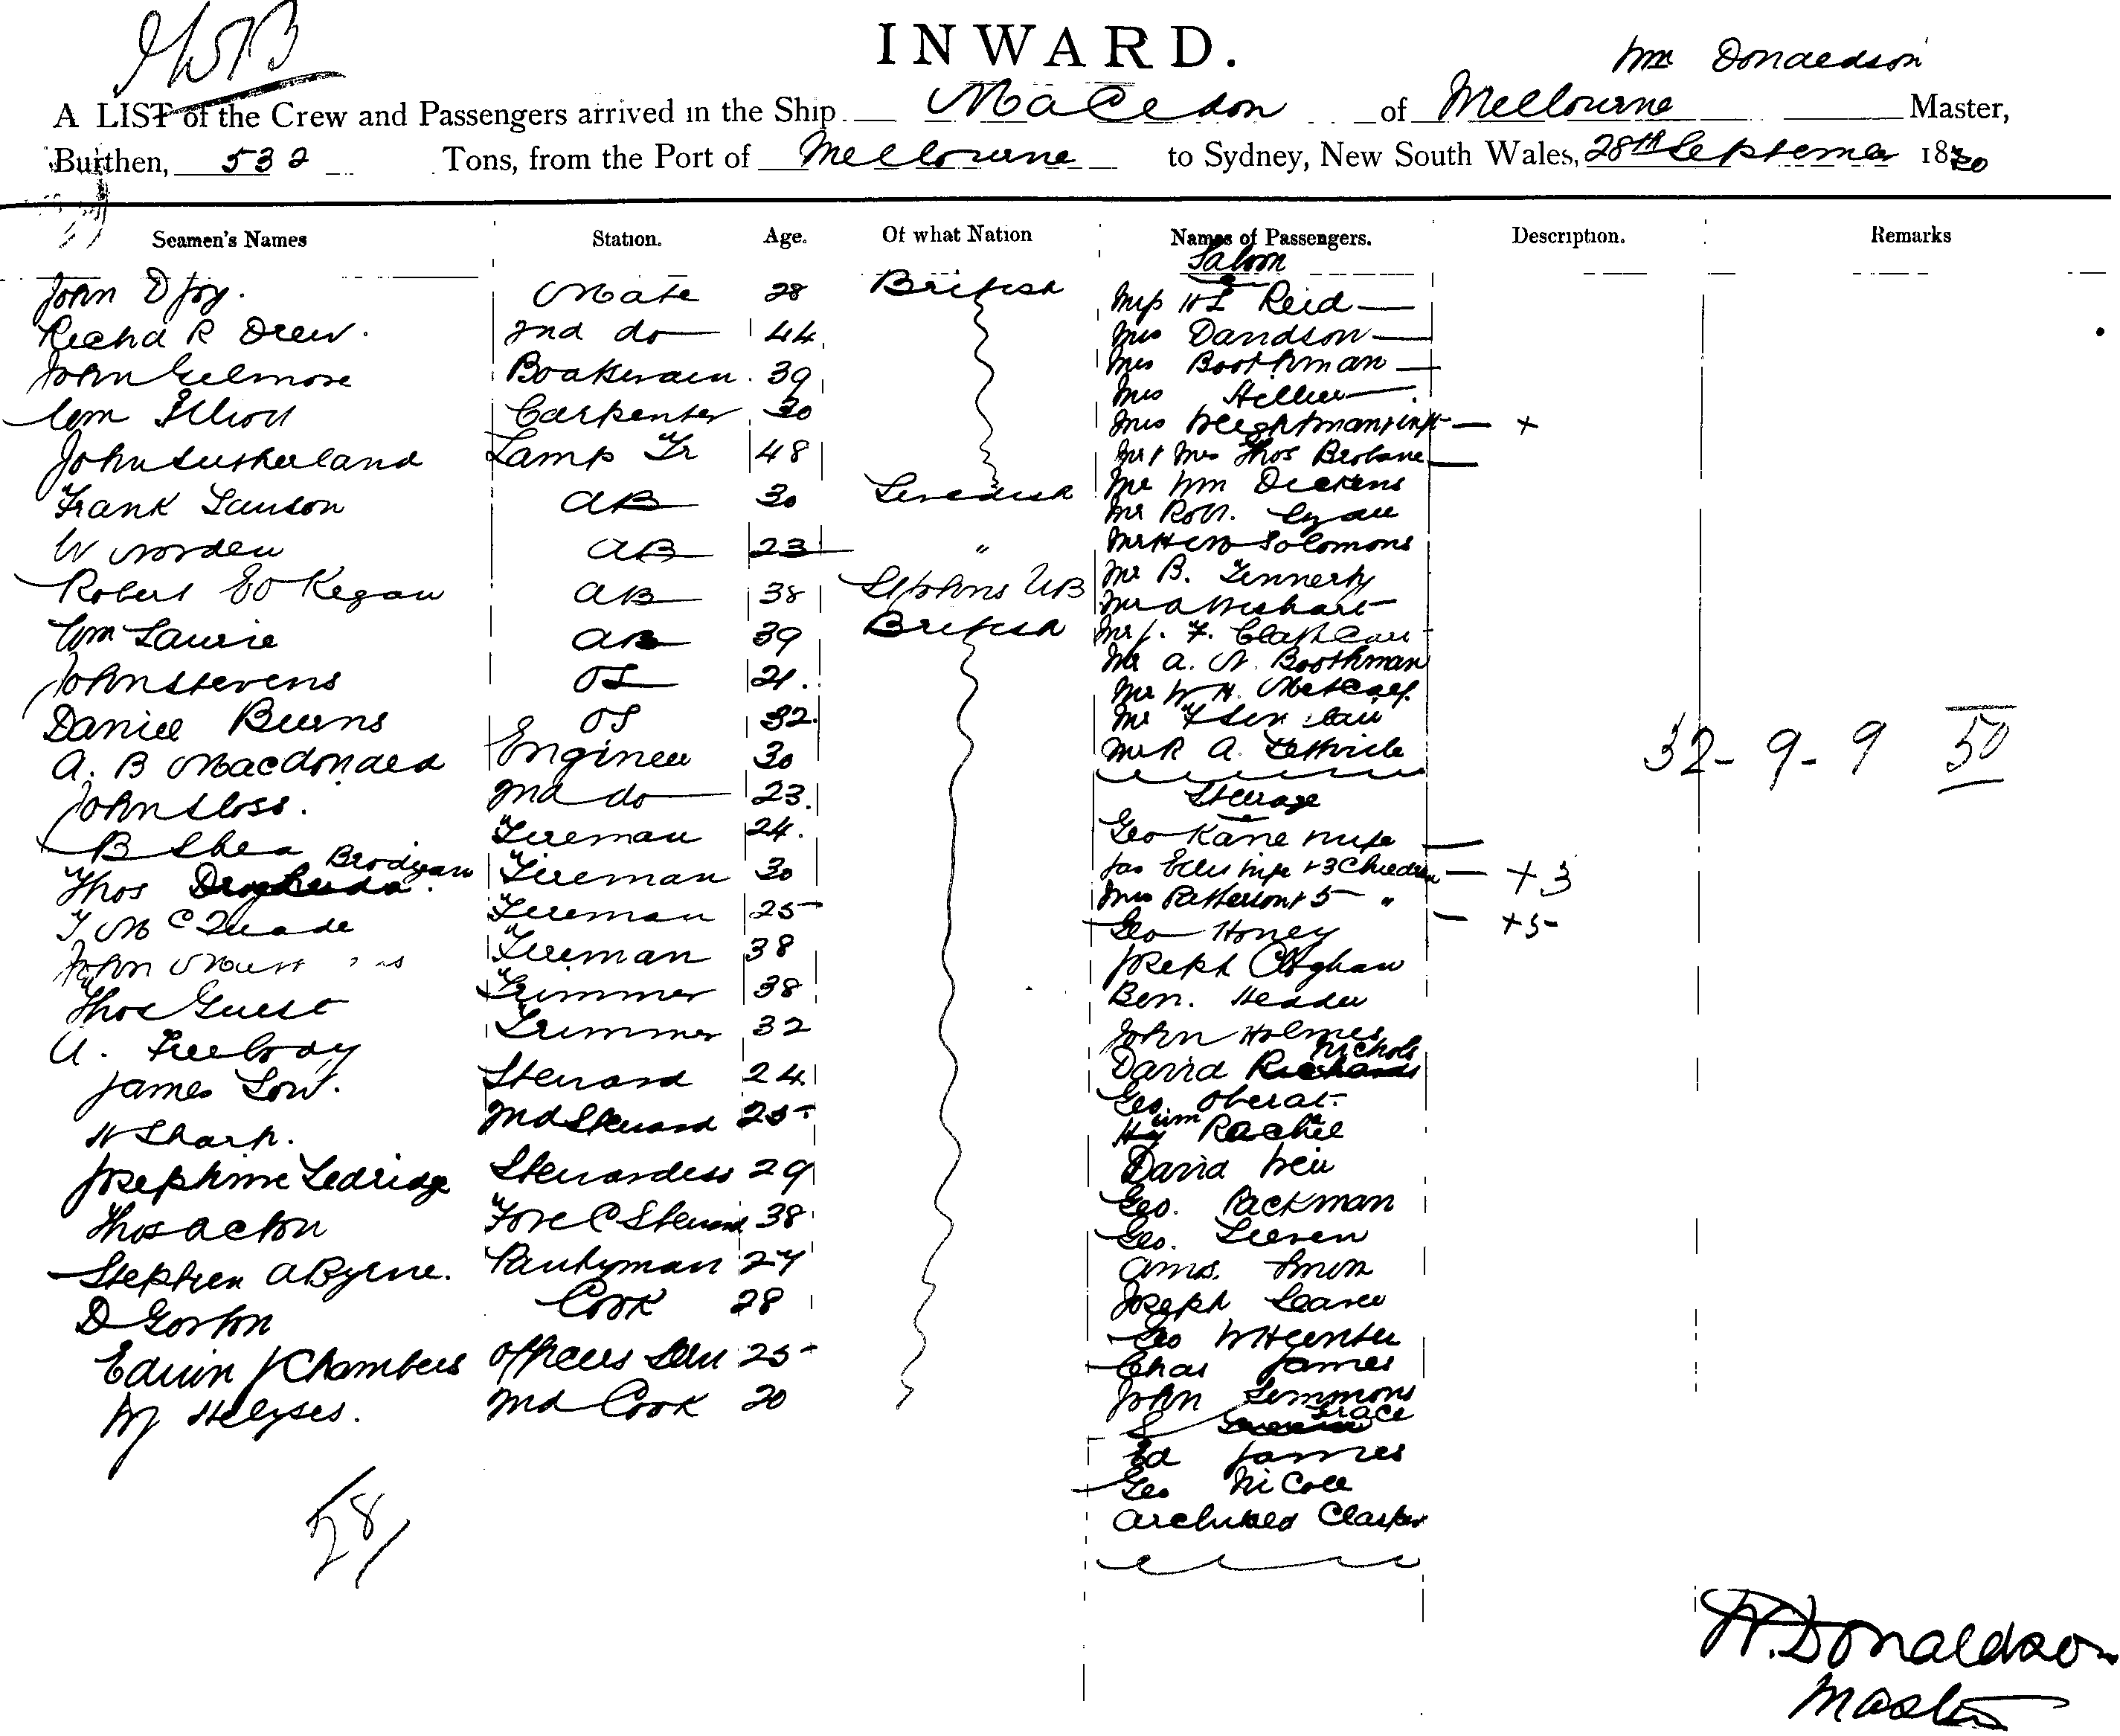 INWARD.
Wm Donaldson
A LIST of the Crew and Passengers arrived in the Ship Macedon of Melbourne Master,
Burthen, 532 Tons, from the Port of Melbourne to Sydney, New South Wales, 28th September 1880
Seamen's Names Station. Age. Of what Nation Names of Passengers. Description. Remarks
Saloon
John D Joy. Mate 28 British Reid
Richd R Drew. 2nd do 44 Mrs Davidson
John Gilmore 39 Mrs Boothman
Wm Elliott Carpenter 30 Mrs Hillier
John Sutherland Lamp Tr 48 Mrs Weightman & inft +
Mr & Mrs Thos Brisbane
Frank Lauson AB 30 Swedish Mr Wm Dickens
Mr Robt. Lyall
W Norden AB 23 " Solomons
Robert Kegan AB 38 St Johns NB Mr B. Finnerty
Mr A Wishart
Wm Laurie AB 39 British
John Stevens OS 21. Mr A. N. Boothman
Mr W H. Metcalf.
Daniel Burns OS 32. Mr
A. B Macdonald Engineer 30 Mr R A.
32-9-9 50
John Sloss. 2nd do 23. Steerage
B Shea Fireman 24. Geo Kane wife
Thos Brodigan Fireman 30 Jas Ellis wife + 3 Children +3
T McQuade Fireman 25 Mrs Patterson + 5 " +5
John Fireman 38 Geo Honey
Thos Guest Trimmer 38 Joseph
Ben. Header
A. Freebody Trimmer 32 John Holmes
David Nichols
James Low. Steward 24
H Sharp. 2nd Steward 25 Wm
Josephine Ledridge Stewardess 29 David Weir
Thos Acton Fore C Steward 38 Geo. Packman
Geo.
Stephen A Byrne. Pantryman 27
D Gorton Cook 28 Joseph
Edwin J Chambers Officers 25 Geo
Chas James
2nd Cook 20 John Simmons
S Grace
Ed James
Geo Nicoll
28
W. Donaldson
Master